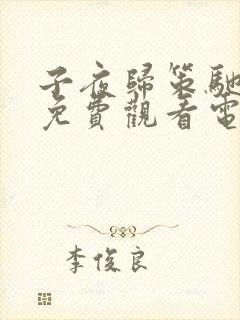 子夜歸策馳
免費觀看電
李俊良